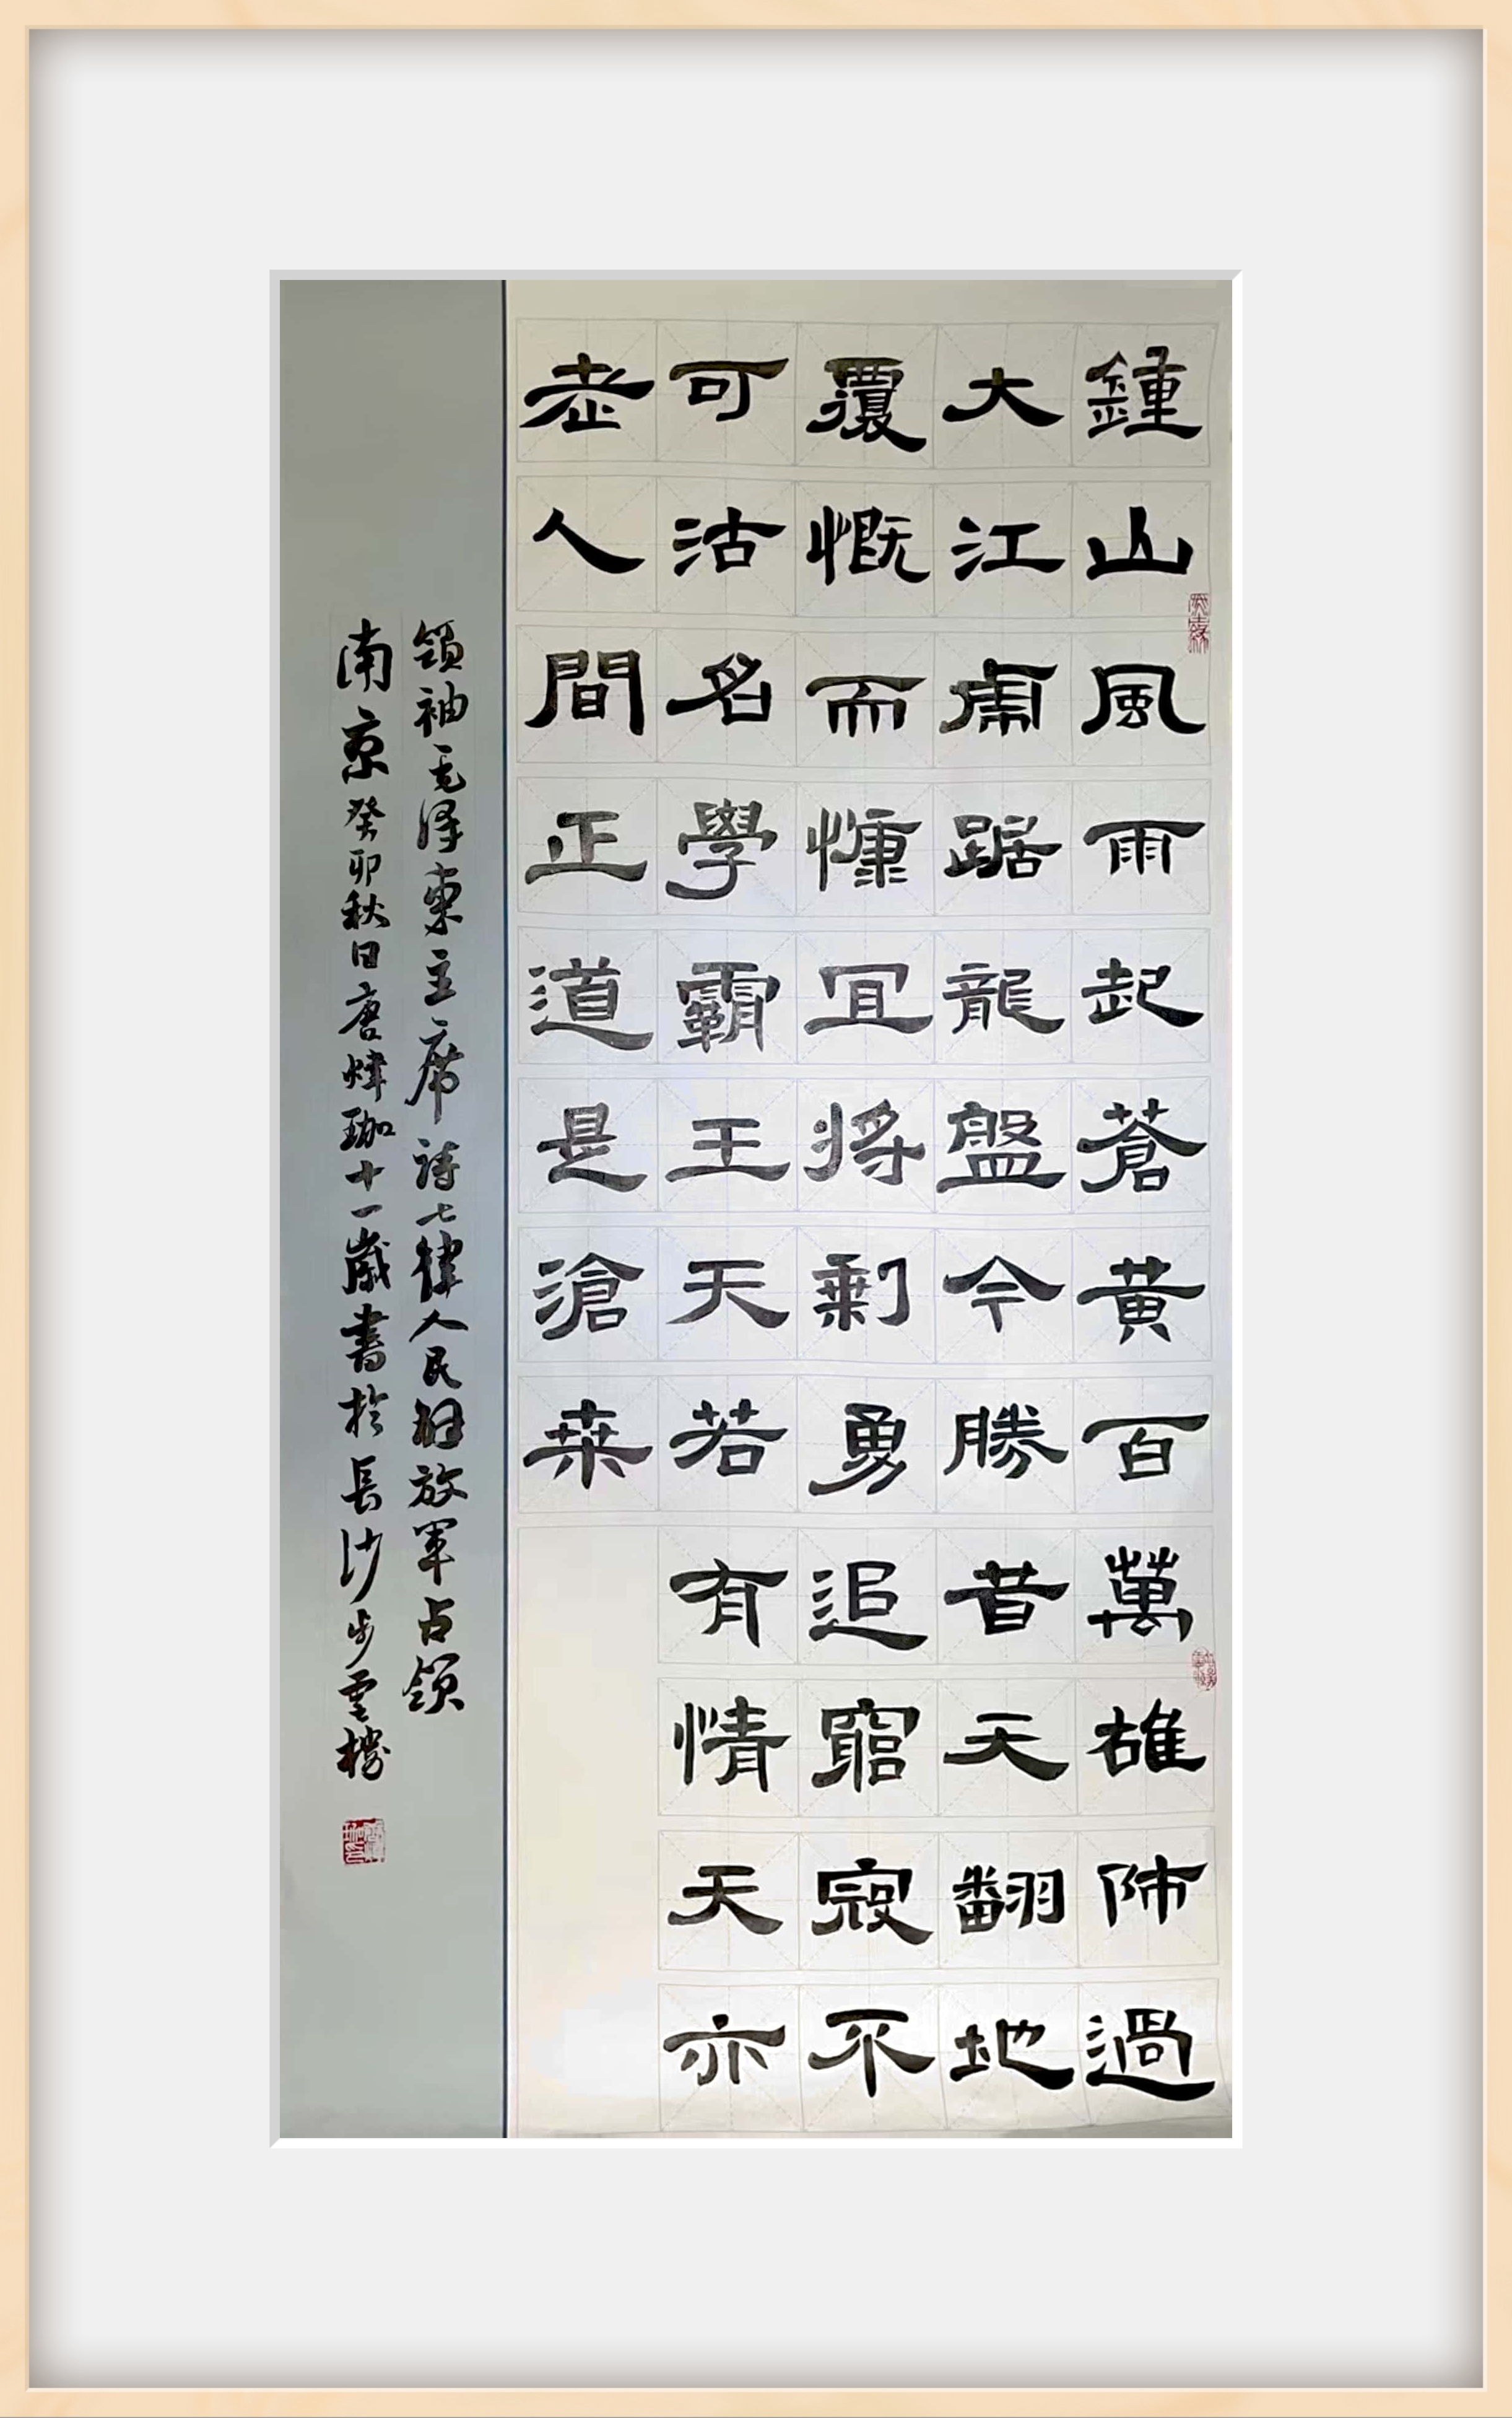 鍾山風雨起蒼黃百萬雄師過
大江虎踞龍盤今勝昔天翻地
覆慨而慷宜將剩勇追窮寇不
可沽名學霸王天若有情天亦
老人間正道是滄桑
領袖毛泽東主席詩七律人民解放軍占領
南京癸卯秋日唐煒珈十一歲書於長沙步雲樓